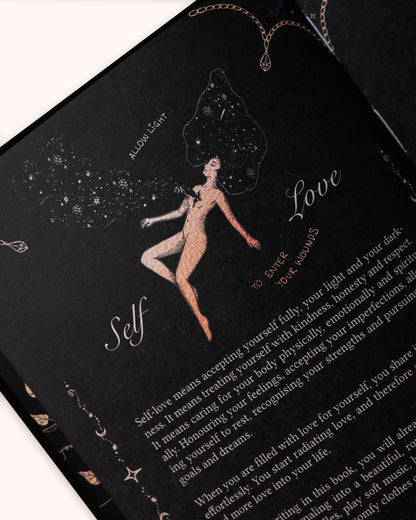 ALLOW LIGHT
Self
Love
TO ENTER
YOUR WOUNDS
Self-love means accepting yourself fully, your light and your dark-
ness. It means treating yourself with kindness, honesty and respec
It means caring for your body physically, emotionally and spiritu
ally. Honouring your feelings, accepting your imperfections,
ing yourself to rest, recognising your strengths and pursu
goals and dreams.
When you are filled with love for yourself, you share
effortlessly. You start radiating love, and therefore
d more love into your life.
iting in this book, you will alrea
ealing into a beautiful,
es, play soft music,
mfy clothes